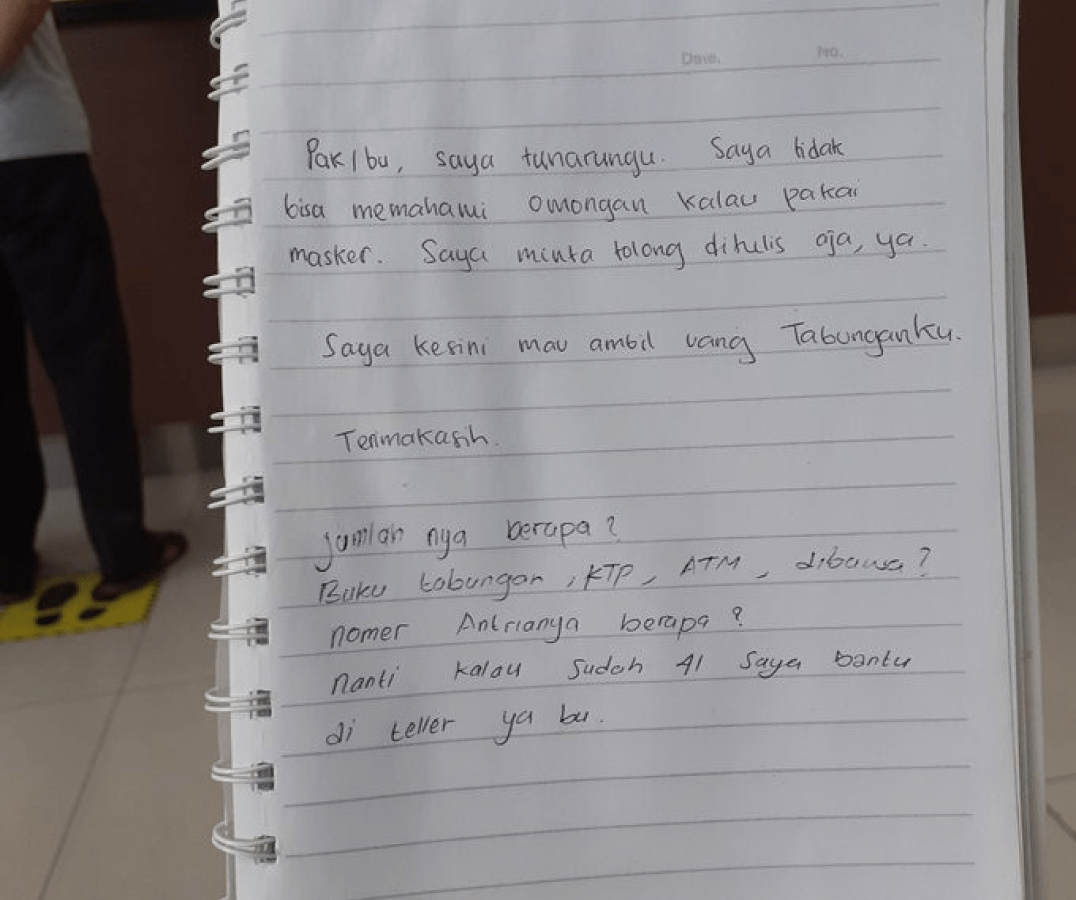 Date. No.
Pak/bu, saya tunarungu. Saya tidak
bisa memahami omongan kalau pakai
masker. Saya minta tolong ditulis aja, ya.
Saya kesini mau ambil uang Tabunganku.
Terimakasih.
jumlah nya berapa?
Buku tabungan, KTP, ATM, dibawa?
nomer Antrianya berapa?
nanti kalau sudah 41 saya bantu
di teller ya bu.